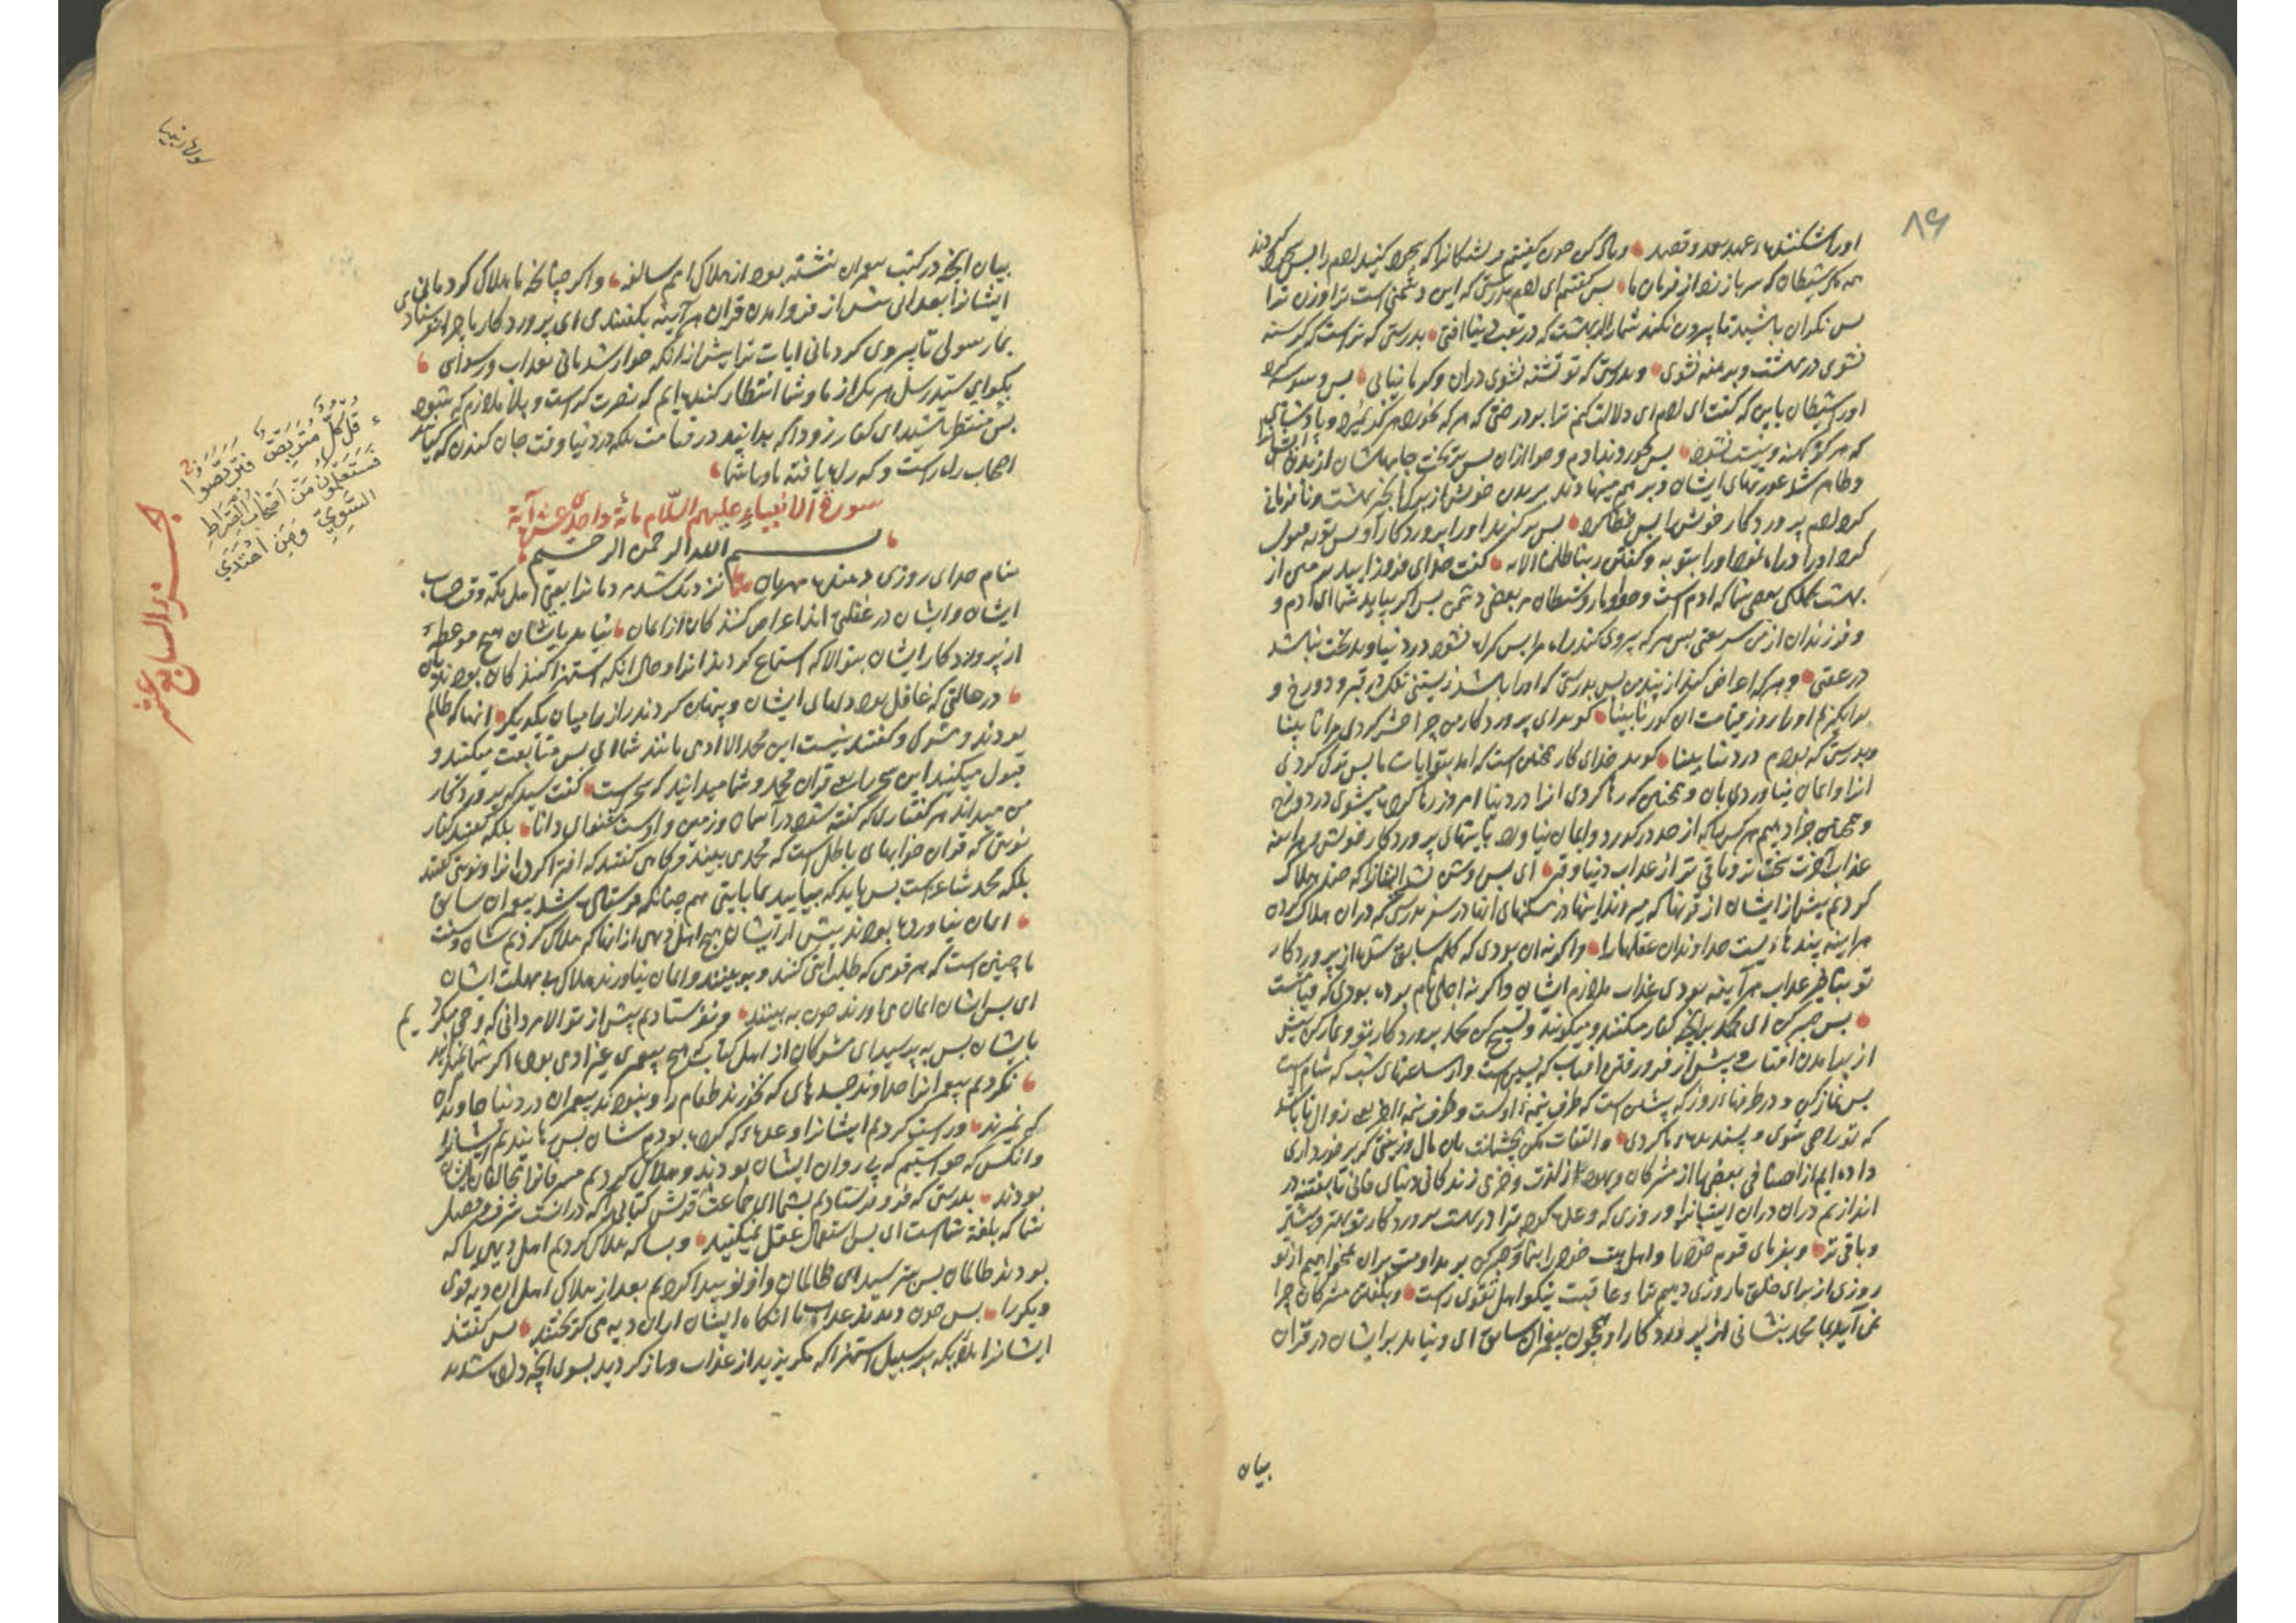 ۸۹
اورا شکننده عهد و قصد و یاد کن چون گفتیم مر فرشتکانرا که سجده کنید ادم را پس سجده کردند
مکر شیطان که سر باز زد از فرمان ما پس کفتیم ای ادم بدرستی که این دشمنی است ترا و زن ترا
پس نکران باشید تا بیرون نکند شما را از بهشت که در تعب دنیا افتی بدرستی که تراست که کرسنه
نشوی در بهشت و برهنه نشوی و بدرستی که تو تشنه نشوی دران و کرما نیابی پس وسوسه کرد
اورا شیطان باین که کفت ای ادم ای دلالت کنم ترا بدرختی که هر که بخورد هرکز نمیرد و پادشاهی
که هرکز کهنه و نیست نشود پس خوردند ادم و حوا ازان پس بریخت جامهاشان از بدن ایشان
و ظاهر شد عورتهای ایشان و بر هم مینهادند بر بدن خویش از برک انجیر بهشت و نافرمانی
کرد ادم پروردکار خویش را پس خطا کرد پس برکزید اورا پروردکار او پس توبه قبول
کرد اورا و راه نمود اورا بتوبه و کفتن ربنا ظلمنا الایه کفت خدای فرود ایید هر دو از
بهشت بعضی شما که ادم است و حوا و مار و شیطان مر بعضی دشمن پس اکر بیاید شما ای ادم و
و فرزندان از من شریعتی پس هر که پیروی کند راه مرا پس کمراه نشود در دنیا و بدبخت نباشد
در عقبی و هر که اعراض کند از پند من پس بدرستی که اورا باشد زیستنی تنک در قبر و دوزخ و
برانکیزیم اورا روز قیامت ان کور نابینا کوید ای پروردکار من چرا حشر کردی مرا نابینا
و بدرستی که بودم در دنیا بینا کوید خدای کار همچنین است که امد بتو ایات ما پس ترک کردی
انرا و ایمان نیاوردی بان و همچنین که رها کردی انرا در دنیا امروز رها کرده میشوی در دوزخ
و همچنین جزا دهیم هر کس را که از حد در کذرد و ایمان نیاورد بایتهای پروردکار خویش و هراینه
عذاب اخرت سخت تر و باقی تر از عذاب دنیا و قبر ای پس روشن نشد انهارا که چند هلاک
کردیم پیش از ایشان از قرنها که میروند اینها در مسکنهای انها در سفر بدرستی که دران هلاک کردن
هراینه پندهاییست خداوندان عقلهارا و اکر نه ان بودی که کلمه سابق شد از پروردکار
تو بتاخیر عذاب هرآینه بودی عذاب ملازم ایشان و اکر نه اجلی نام برده بودی که قیامت است
پس صبر کن ای محمد بر انچه کفار میکنند و میکویند و تسبیح کن بحمد پروردکار تو و نماز کن پیش
از برامدن افتاب و پیش از فرو رفتن افتاب که پسین است و از ساعتهای شب که شام است
پس نماز کن و در طرفهای روز که پیشین است
که تو راضی شوی و پسندیده و التفات مکن بچشمانت بان مال و زینتی که برخورداری
داده ایم از اصنافی بعضی را از مشرکان و یهود از لذت و خرمی زندکانی دنیای فانی تا بفتنه در
اندازیم دران ایشانرا و روزی که وعده کرده ترا در بهشت پروردکار تو بهتر و بیشتر
و باقی تر و بفرمای قوم خود را و اهل بیت خود را بنماز و صبر کن بر مداومت بران نمیخواهیم از تو
روزی از برای خلق ما روزی دهیم ترا و عاقبت نیکو اهل تقوی راست و بکفتند مشرکان چرا
نمی آید محمد بنشانی از پروردکار او همچون پیغمبران سابق ای و نیامد بر ایشان در قرآن
بیان
بیان انچه در کتب پیغمبران نبشته بود از هلاک امم سالفه و اکر چنانچه ما هلاک کردمانی
ایشانرا بعذابی پیش از فرو امدن قران هر آینه بکفتندی ای پروردکار ما چرا نفرستادی
بما رسولی تا پیروی کردمانی ایات ترا پیش ازانکه خوار شدمانی بعذاب و رسوای
بکو ای سید رسل هر یک از ما و شما انتظار کننده ایم که نصرت کراست و بلا ملازم که شود
پس منتظر باشید ای کفار زود که بدانید در قیامت بلکه در دنیا وقت جان کندن که کیانند
اصحاب راه راست و که ره یافته ما و یا شما
سورة الانبیاء علیهم السّلام مائة واحدی عشر آیة
بسم الله الرحمن الرحیم
بنام خدای روزی دهنده مهربان نزدیک شد مردمانرا یعنی اهل مکه وقت حساب
ایشان و ایشان در غفلتی اند اعراض کنندکان از ایمان نیاید بایشان هیچ موعظه
از پروردکار ایشان بنو الا که استماع کردند انرا و حال انکه استهزا کنندکان بودند بان
در حالتی که غافل بود دلهای ایشان و پنهان کردند راز را میان یکدیکر انها که ظالم
بودند و مشرک و کفتند نیست این محمد الا ادمی مانند شما ای پس متابعت میکنید و
قبول میکنید این سحر را یعنی قران محمد و شما میدانید که سحر است کفت سید که پروردکار
من میداند هر کفتاری که کفته شود در آسمان و زمین و اوست شنوای دانا بلکه کفتند کفار
نوبتی که قران خوابهای باطل است که محمد می بیند و کاهی کفتند که افترا کرد انرا و نوبتی کفتند
بلکه محمد شاعر است پس باید که بیاید بما بایتی همچنانکه فرستاده شد پیغمبران سابق
ایمان نیاورده بودند پیش از ایشان هیچ اهل دیهی از انها که هلاک کردیم شان و سنت
ما چنین است که هر قومی که طلب ایتی کنند و ببینند و ایمان نیاورند هلاک بی مهلت ایشان
ای پس ایشان ایمان می اورند چون به بینند و نفرستادیم پیش از تو الا مردانی که وحی میکردیم
بایشان پس بپرسید ای مشرکان از اهل کتاب که هیچ پیغمبری غیر ادمی بود اکر شما نمیدانید
نکردیم پیغمبرانرا خداوند جسدهای که نخورند طعام را و نبودند پیغمبران در دنیا جاویدان
که نمیرند و راست کردیم ایشانرا وعده که کرده بودیم شان پس برهانیدیم ایشانرا
و انکس که خواستیم که پی روان ایشان بودند و هلاک کردیم مسرفانرا که مخالفان ایشان
بودند بدرستی که فرو فرستادیم بشما ای جماعت قریش کتابی را که درانست شرف و فضل
شما که بلغت شماست ای پس استعمال عقل نمیکنید و بسا که هلاک کردیم اهل دیهی را که
بودند ظالمان پس بترسید ای ظالمان و از نو پیدا کردیم بعد از هلاک اهل ان دیه قومی
دیکر را پس چون دیدند عذاب ما انکاه ایشان ازان دیه می کریختند پس کفتند
ایشانرا ملائکه بر سبیل استهزا که مکریزید از عذاب و باز کردید بسوی انچه داده شدید
قُل کُلٌّ مُتَرَبِّصٌ فَتَرَبَّصُوا
فَسَتَعْلَمُونَ مَنْ اَصْحَابُ الصِّرَاطِ
السَّوِیِّ وَمَنِ اهْتَدَی
جزء السابع عشر